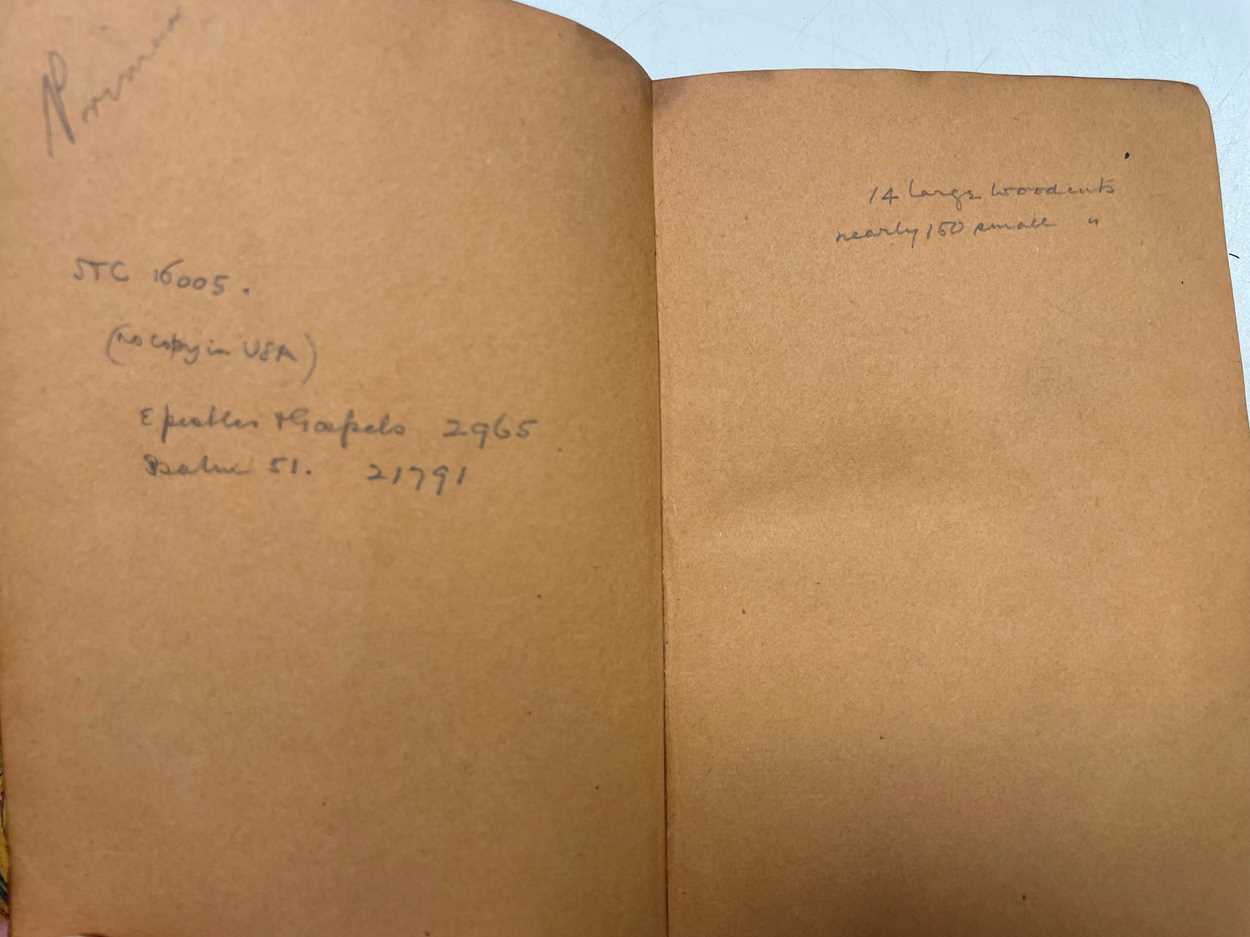 Primer
STC 16005.
(no copy in USA)
Epistles & Gospels 2965
Psalm 51. 21791
14 large woodcuts
nearly 150 small "